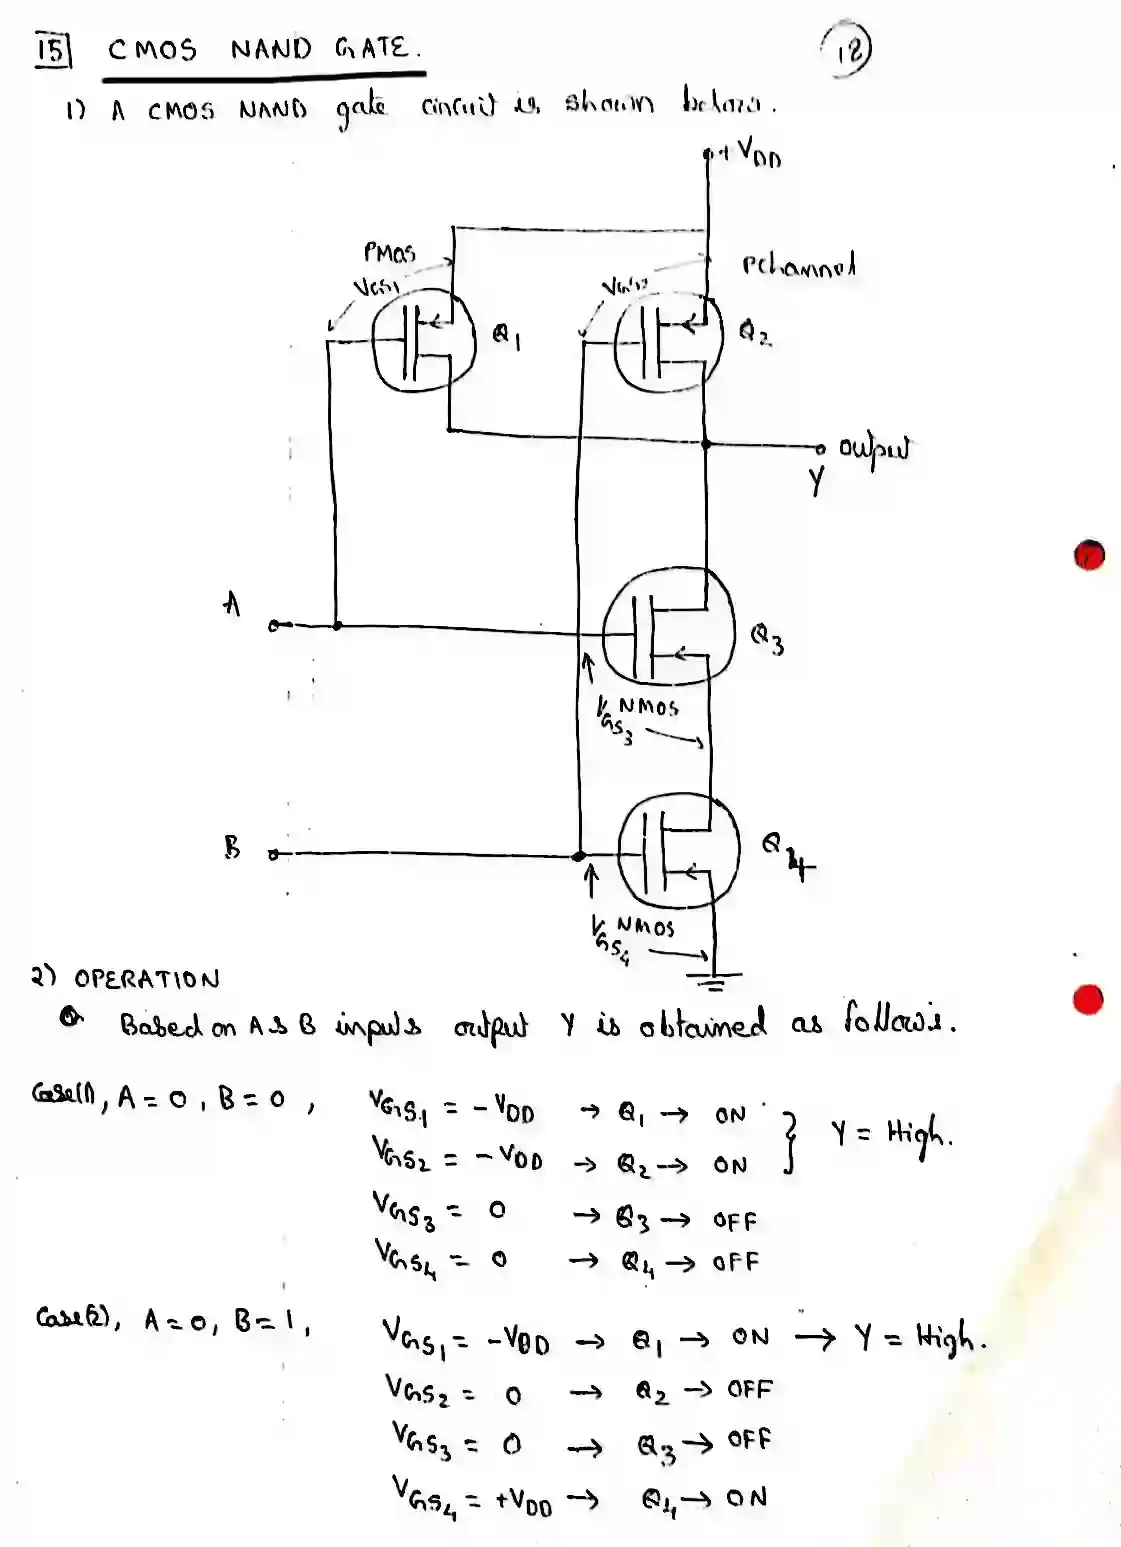 15 CMOS NAND GATE.
12
1) A CMOS NAND gate circuit is shown below.
+VDD
PMOS
VGS1
VGS2
Pchannel
Q1
Q2
output
Y
A
Q3
NMOS
VGS3
B
Q4
NMOS
VGS4
2) OPERATION
Based on A & B inputs output Y is obtained as follows.
Case(1), A = 0, B = 0, VGS1 = -VDD → Q1 → ON } Y = High.
VGS2 = -VDD → Q2 → ON
VGS3 = 0 → Q3 → OFF
VGS4 = 0 → Q4 → OFF
Case(2), A = 0, B = 1, VGS1 = -VDD → Q1 → ON → Y = High.
VGS2 = 0 → Q2 → OFF
VGS3 = 0 → Q3 → OFF
VGS4 = +VDD → Q4 → ON